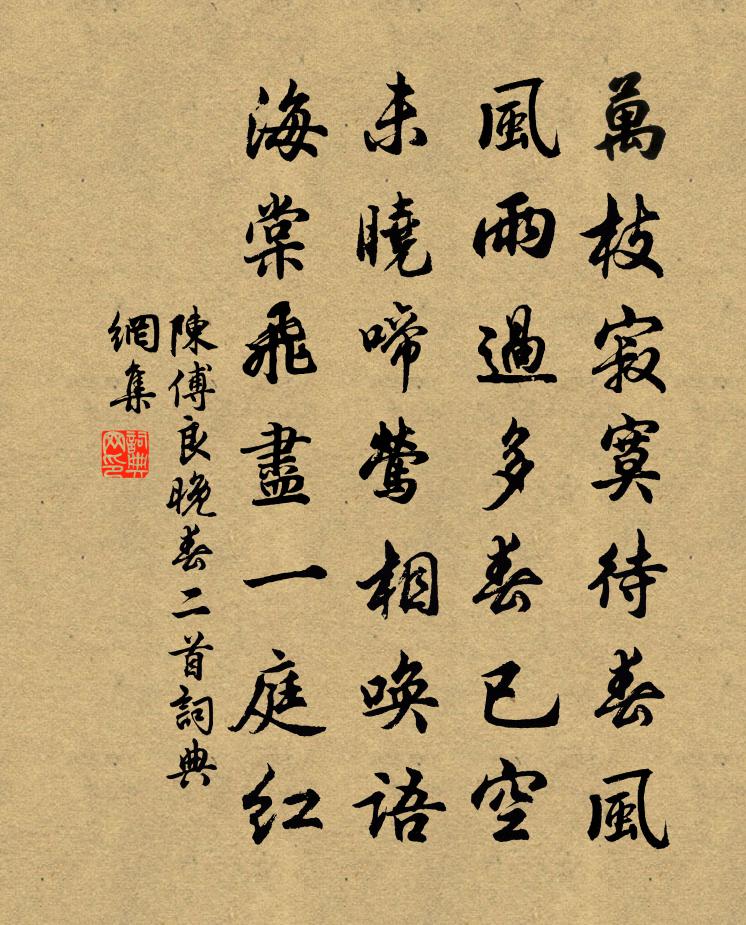 萬枝寂寞待春風
風雨過多春已空
未曉啼鶯相喚語
海棠飛盡一庭紅
陳傅良晚春二首詞典
網集
詞典
网印